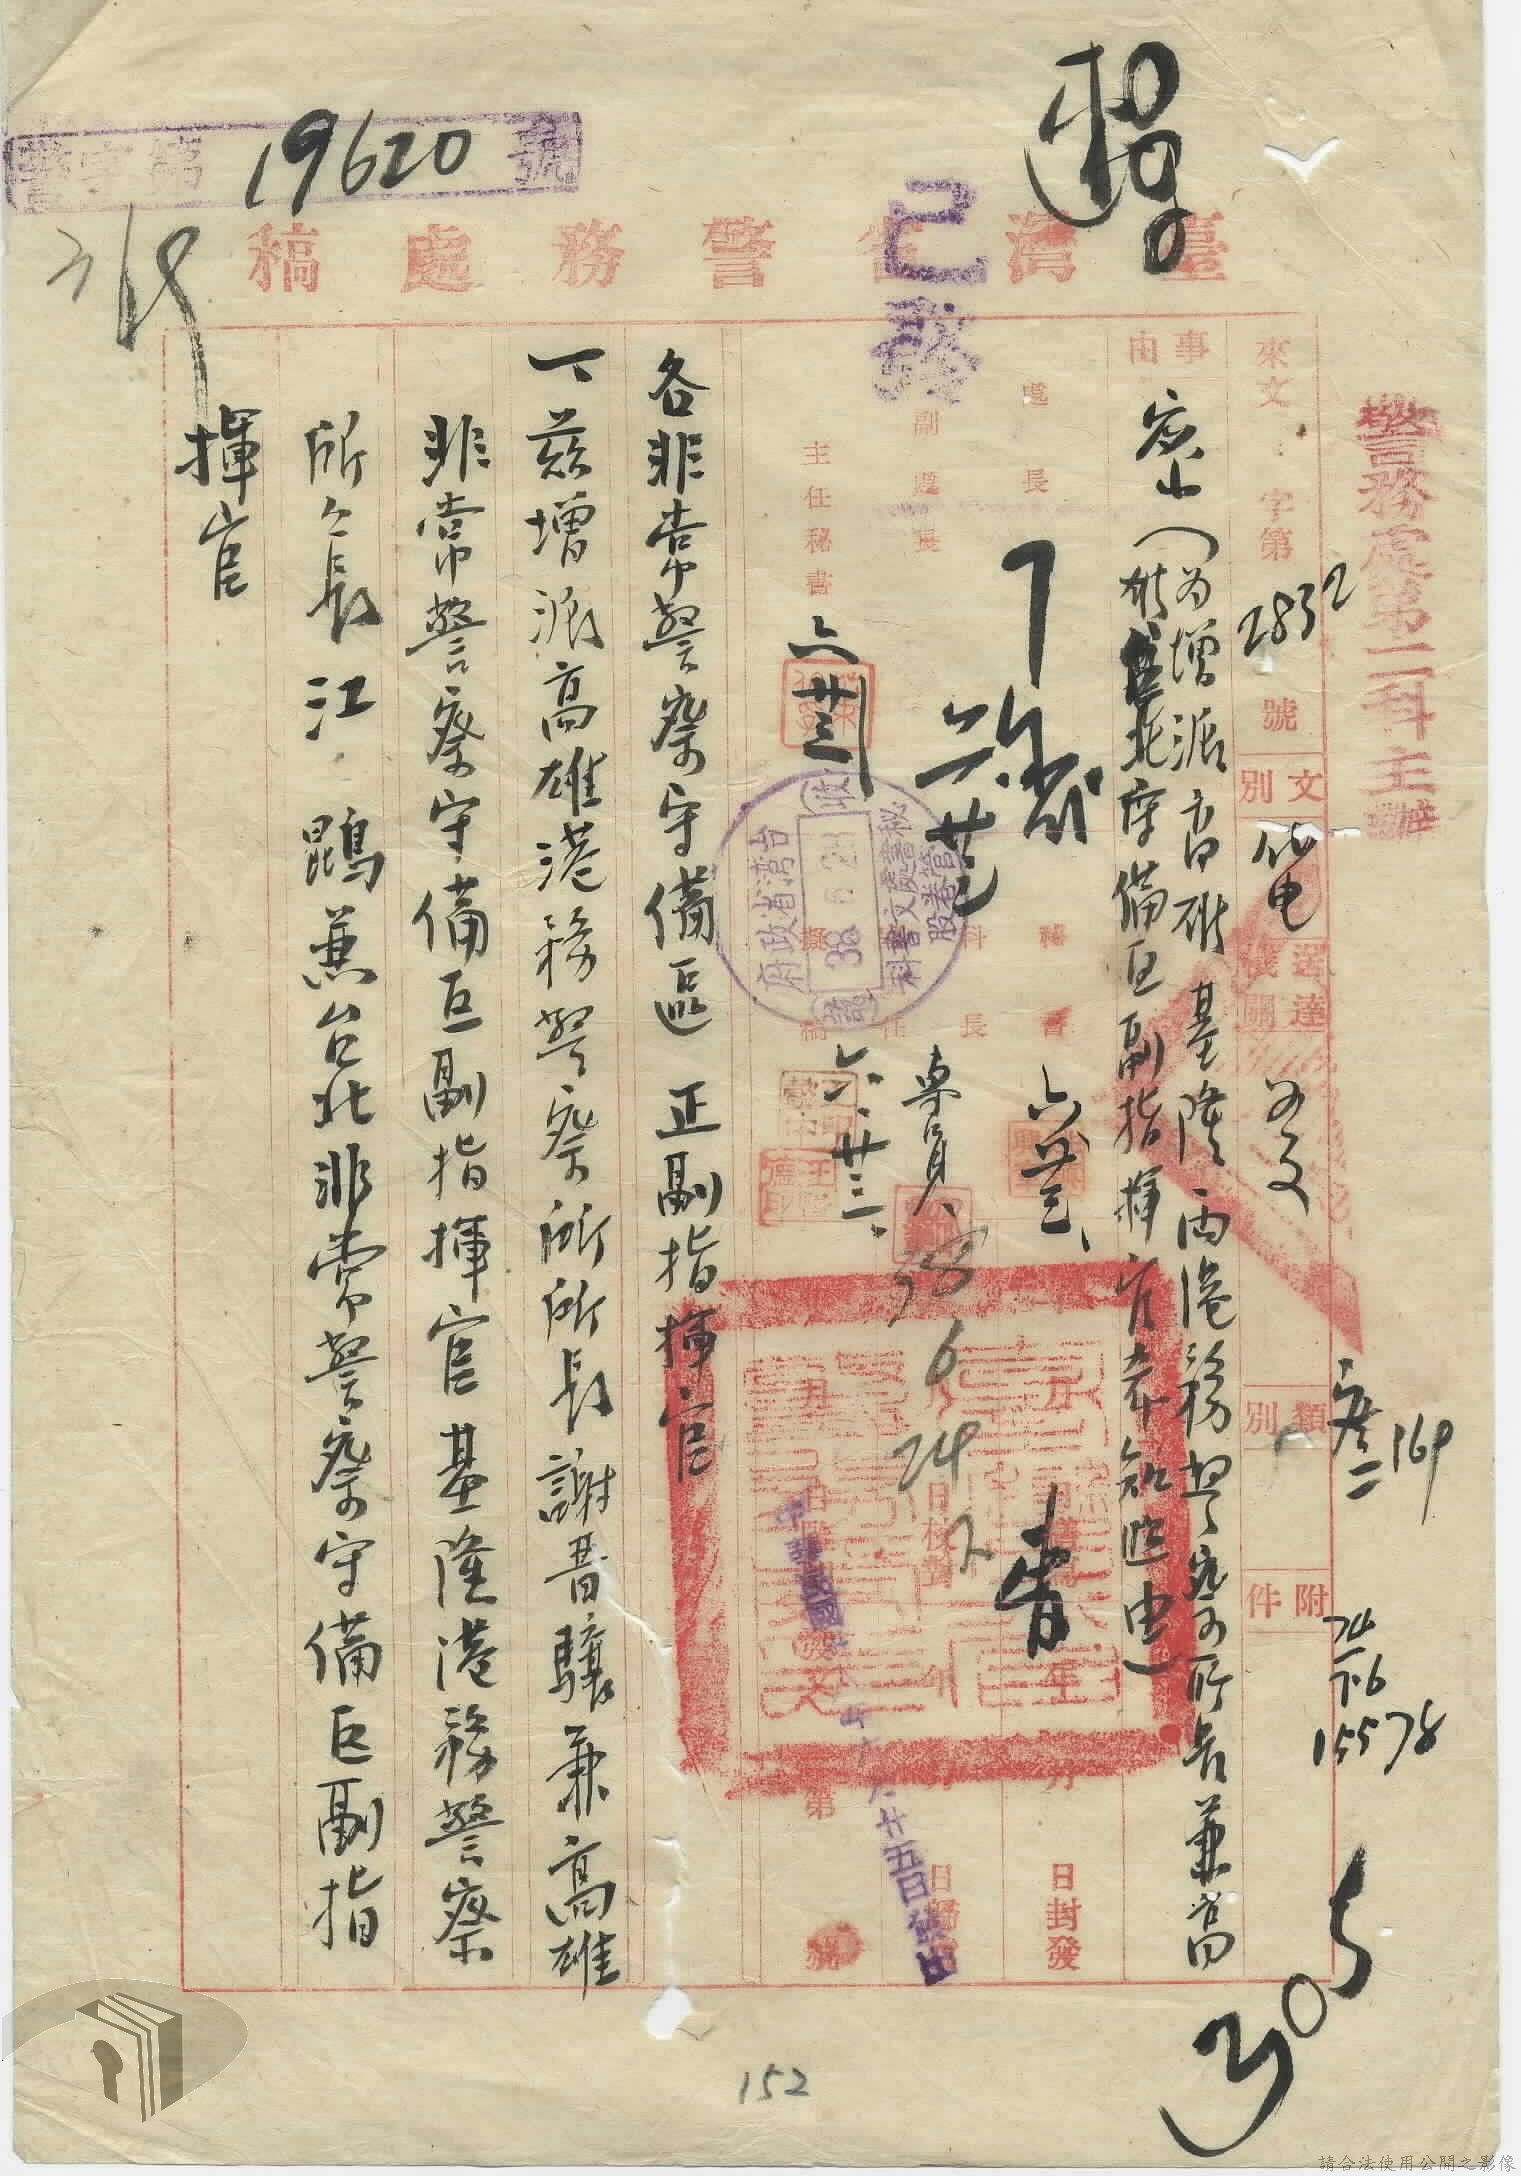 警字第19620號
臺灣省警務處稿
已發
警務處第二科主辦
來文 字第2832號
文別 代電
送達機關
類別
附件
事由
密(為增派高雄基隆兩港務警察所長兼高
雄臺北守備區副指揮官希知照由)
處長
副處長
主任秘書
六廿三
台灣省政府 秘書處文書科管卷股
收 38.6.23 發
專員
六廿三
38 6 24
廿五日發出
日封發
各非常警察守備區正副指揮官
一、茲增派高雄港務警察所所長謝晋驤兼高雄
非常警察守備區副指揮官基隆港務警察
所所長江鵾兼台北非常警察守備區副指
揮官
169
15578
305
152
請合法使用公開之影像